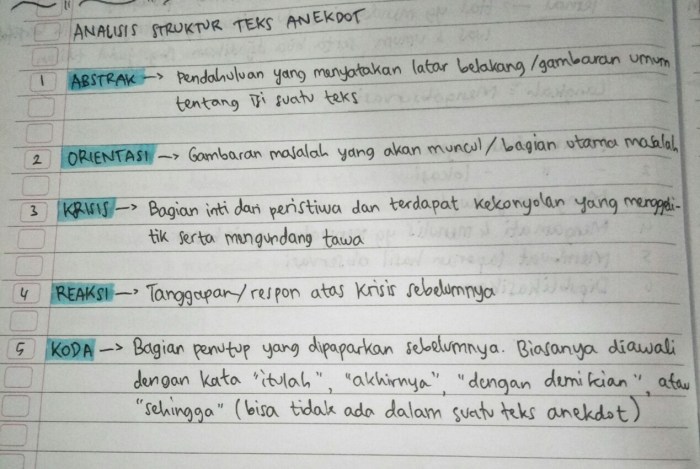 ANALISIS STRUKTUR TEKS ANEKDOT
1 ABSTRAK → Pendahuluan yang menyatakan latar belakang/gambaran umum
tentang isi suatu teks
2 ORIENTASI → Gambaran masalah yang akan muncul/bagian utama masalah
3 KRISIS → Bagian inti dari peristiwa dan terdapat kekonyolan yang menggeli-
tik serta mengundang tawa
4 REAKSI → Tanggapan/respon atas krisis sebelumnya
5 KODA → Bagian penutup yang dipaparkan sebelumnya. Biasanya diawali
dengan kata "itulah", "akhirnya", "dengan demikian", atau
"sehingga" (bisa tidak ada dalam suatu teks anekdot)